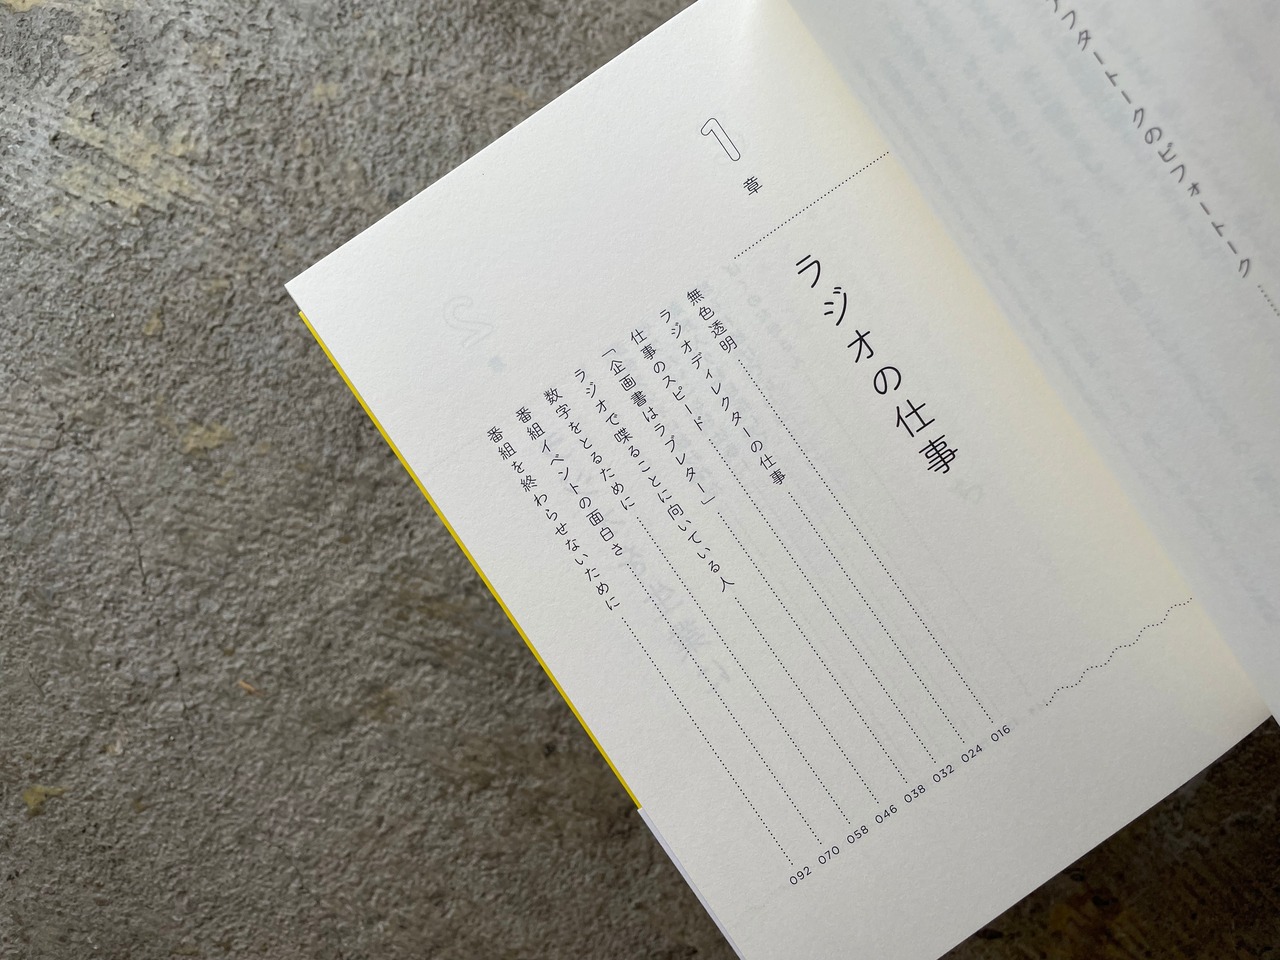 フタートークのビフォートーク
1章
ラジオの仕事
無色透明 016
ラジオディレクターの仕事 024
仕事のスピード 032
「企画書はラブレター」 038
ラジオで喋ることに向いている人 046
数字をとるために 058
番組イベントの面白さ 070
番組を終わらせないために 092